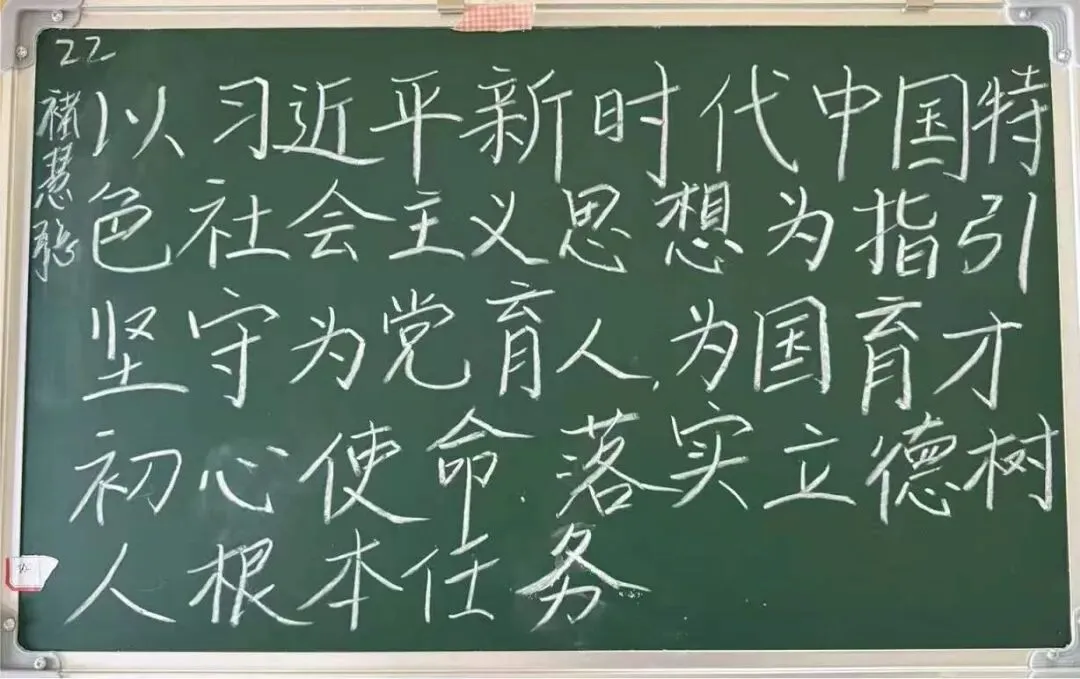 22
褚慧
以习近平新时代中国特
色社会主义思想为指引
坚守为党育人,为国育才
初心使命.落实立德树
人根本任务